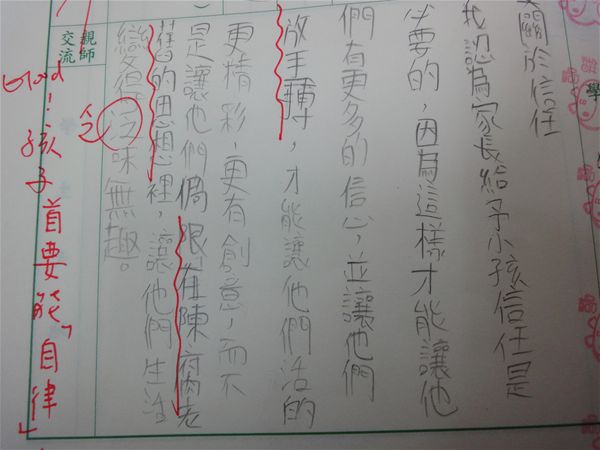 學
關於信任
我認為家長給予小孩信任是
必要的，因為這樣才能讓他
們有更多的信心，並讓他們
放手搏，才能讓他們活的
更精彩，更有創意，而不
是讓他們侷限在陳腐老
舊的思想裡，讓他們生活
變得泛味無趣。
乏
親師
交流
Good！孩子首要能「自律」